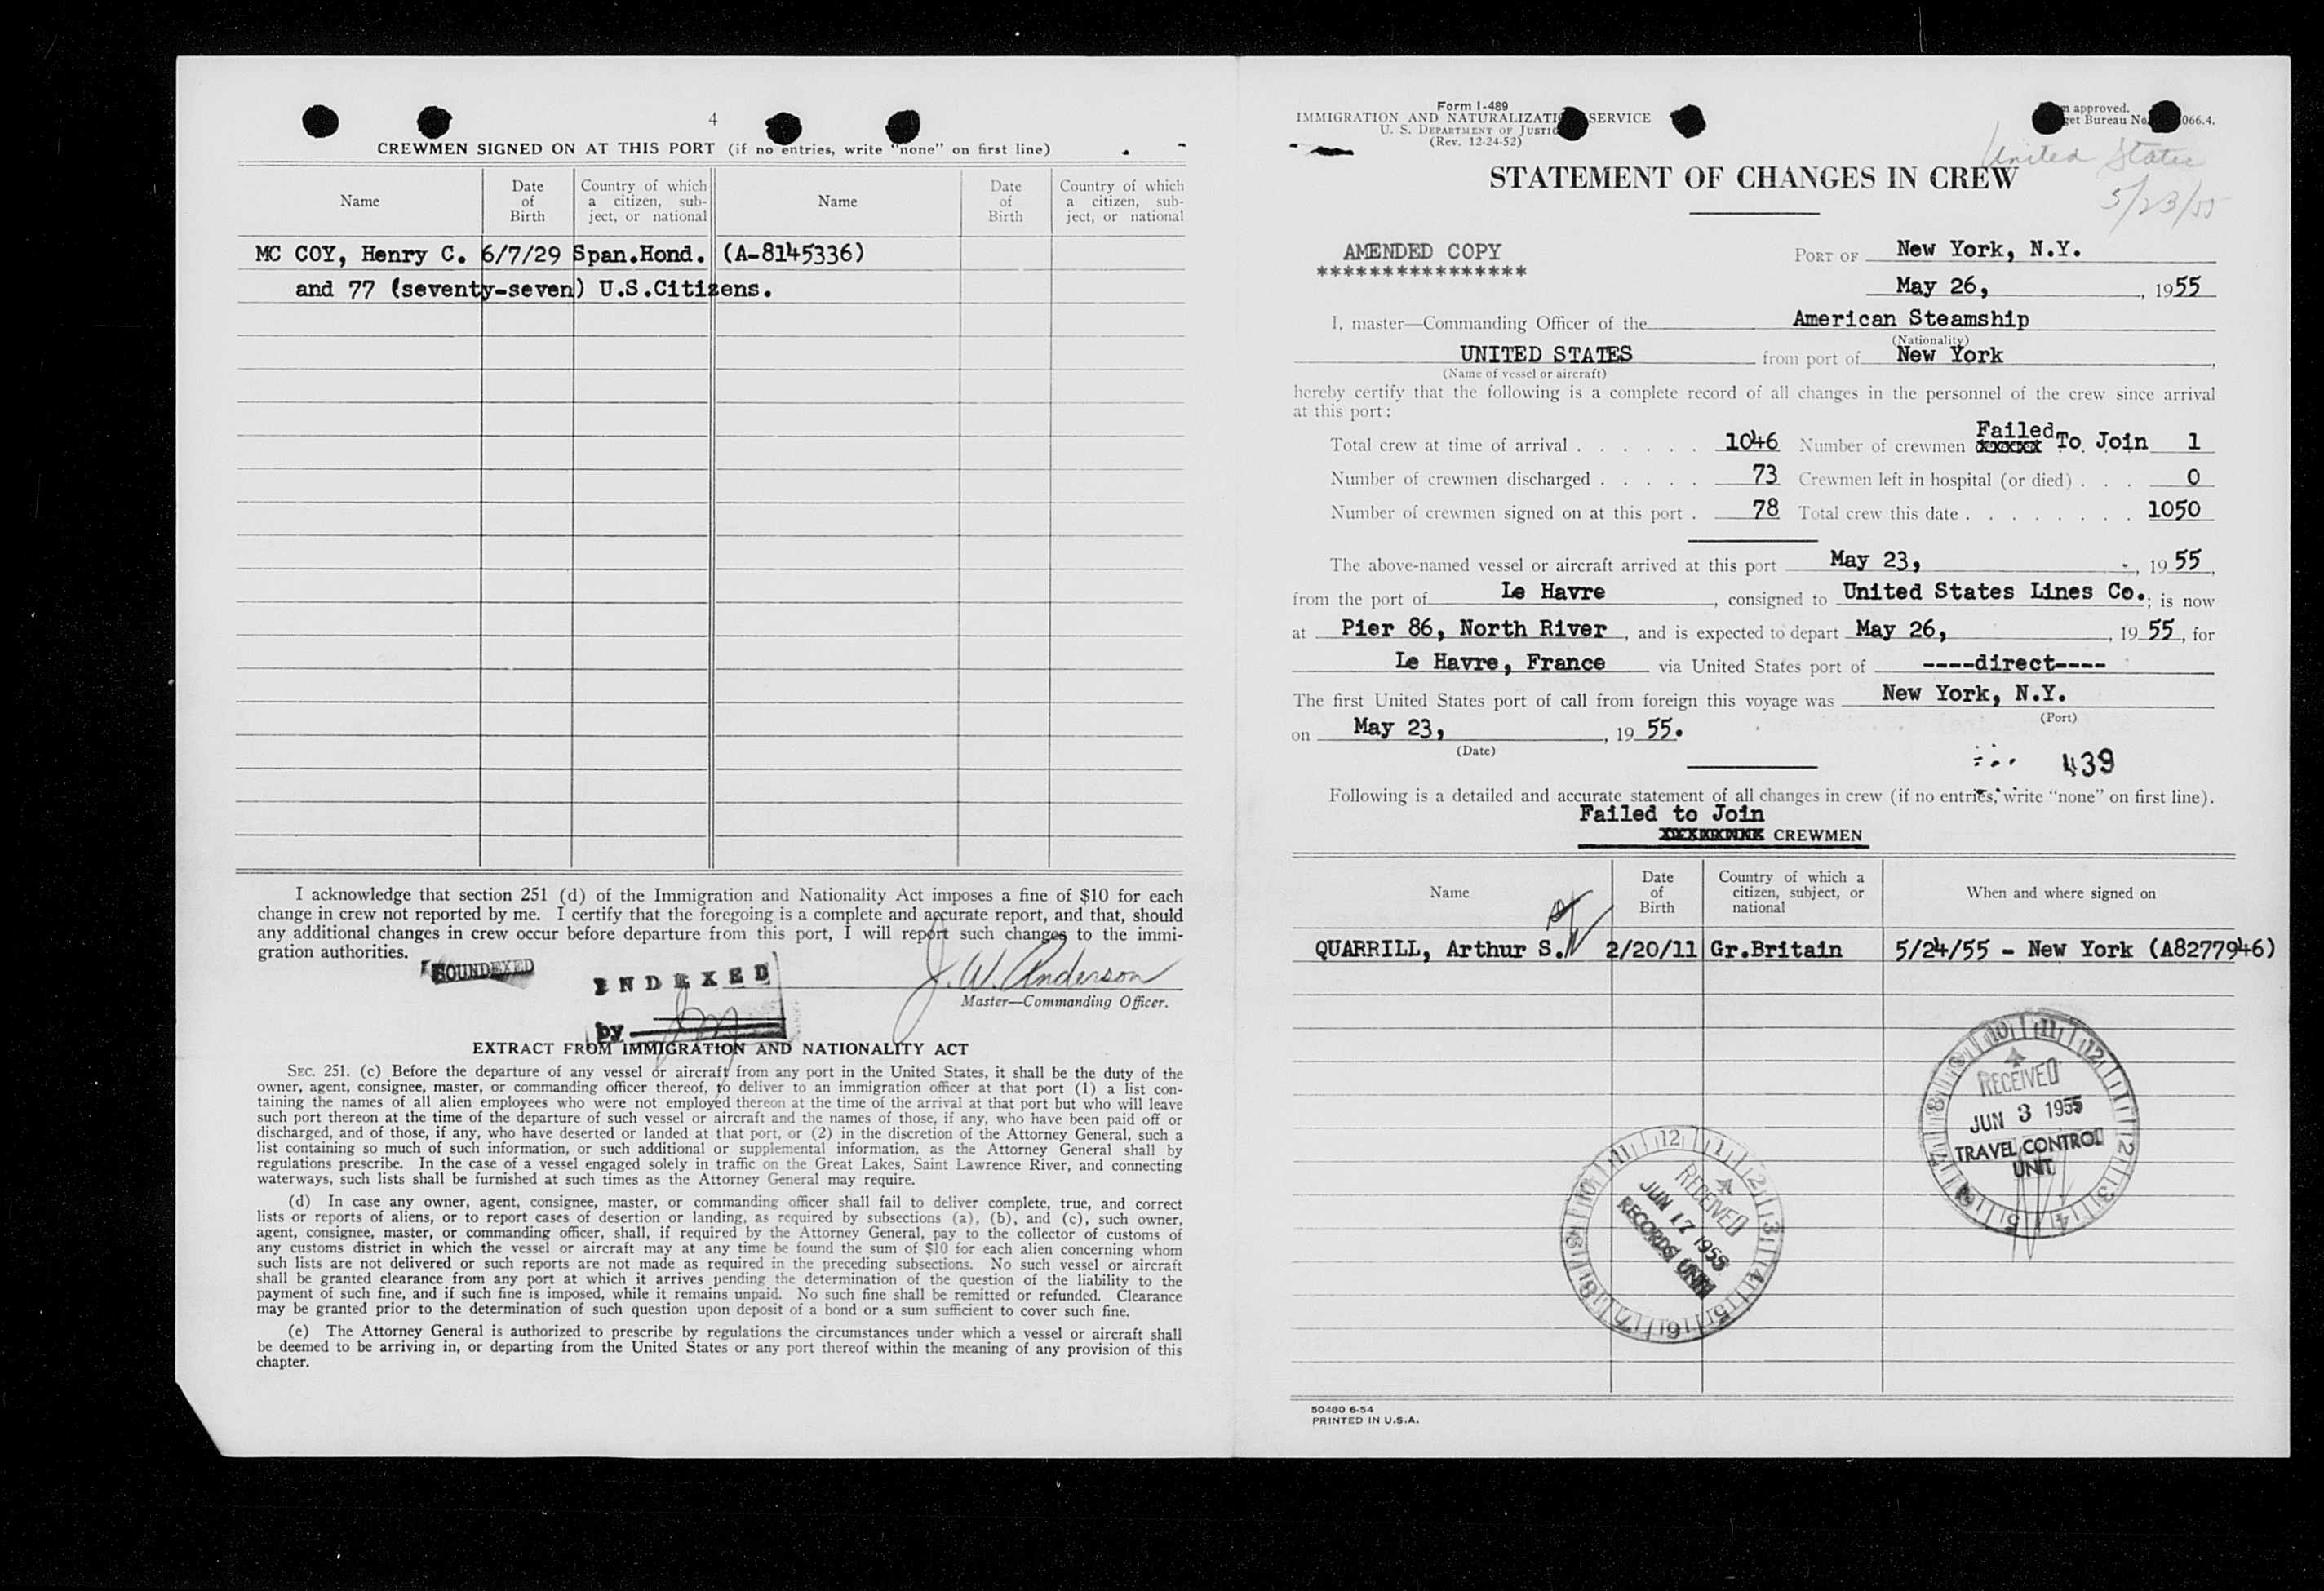 4
CREWMEN SIGNED ON AT THIS PORT (if no entries, write "none" on first line)
Name
Date of Birth
Country of which a citizen, subject, or national
Name
Date of Birth
Country of which a citizen, subject, or national
MC COY, Henry C. 6/7/29 Span.Hond. (A-8145336)
and 77 (seventy-seven) U.S.Citizens.
I acknowledge that section 251 (d) of the Immigration and Nationality Act imposes a fine of $10 for each
change in crew not reported by me. I certify that the foregoing is a complete and accurate report, and that, should
any additional changes in crew occur before departure from this port, I will report such changes to the immi-
gration authorities.
SOUNDEXED
INDEXED
by
J. W. Anderson
Master—Commanding Officer.
EXTRACT FROM IMMIGRATION AND NATIONALITY ACT
SEC. 251. (c) Before the departure of any vessel or aircraft from any port in the United States, it shall be the duty of the
owner, agent, consignee, master, or commanding officer thereof, to deliver to an immigration officer at that port (1) a list con-
taining the names of all alien employees who were not employed thereon at the time of the arrival at that port but who will leave
such port thereon at the time of the departure of such vessel or aircraft and the names of those, if any, who have been paid off or
discharged, and of those, if any, who have deserted or landed at that port, or (2) in the discretion of the Attorney General, such a
list containing so much of such information, or such additional or supplemental information, as the Attorney General shall by
regulations prescribe. In the case of a vessel engaged solely in traffic on the Great Lakes, Saint Lawrence River, and connecting
waterways, such lists shall be furnished at such times as the Attorney General may require.
(d) In case any owner, agent, consignee, master, or commanding officer shall fail to deliver complete, true, and correct
lists or reports of aliens, or to report cases of desertion or landing, as required by subsections (a), (b), and (c), such owner,
agent, consignee, master, or commanding officer, shall, if required by the Attorney General, pay to the collector of customs of
any customs district in which the vessel or aircraft may at any time be found the sum of $10 for each alien concerning whom
such lists are not delivered or such reports are not made as required in the preceding subsections. No such vessel or aircraft
shall be granted clearance from any port at which it arrives pending the determination of the question of the liability to the
payment of such fine, and if such fine is imposed, while it remains unpaid. No such fine shall be remitted or refunded. Clearance
may be granted prior to the determination of such question upon deposit of a bond or a sum sufficient to cover such fine.
(e) The Attorney General is authorized to prescribe by regulations the circumstances under which a vessel or aircraft shall
be deemed to be arriving in, or departing from the United States or any port thereof within the meaning of any provision of this
chapter.
Form I-489
IMMIGRATION AND NATURALIZATI SERVICE
U. S. DEPARTMENT OF JUSTIC
(Rev. 12-24-52)
approved.
get Bureau No. 066.4.
United States
5/23/55
STATEMENT OF CHANGES IN CREW
AMENDED COPY
****************
PORT OF New York, N.Y.
May 26, , 1955
I, master—Commanding Officer of the American Steamship
(Nationality)
UNITED STATES from port of New York ,
(Name of vessel or aircraft)
hereby certify that the following is a complete record of all changes in the personnel of the crew since arrival
at this port:
Total crew at time of arrival . . . . . . 1046 Number of crewmen Failed To Join 1
Number of crewmen discharged . . . . . 73 Crewmen left in hospital (or died) . . . 0
Number of crewmen signed on at this port . 78 Total crew this date . . . . . . . . 1050
The above-named vessel or aircraft arrived at this port May 23, , 19 55,
from the port of Le Havre , consigned to United States Lines Co.; is now
at Pier 86, North River , and is expected to depart May 26, , 19 55, for
Le Havre, France via United States port of ----direct----
The first United States port of call from foreign this voyage was New York, N.Y.
(Port)
on May 23, , 19 55.
(Date)
439
Following is a detailed and accurate statement of all changes in crew (if no entries, write "none" on first line).
Failed to Join
CREWMEN
Name
Date of Birth
Country of which a citizen, subject, or national
When and where signed on
QUARRILL, Arthur S. 2/20/11 Gr.Britain 5/24/55 - New York (A8277946)
RECEIVED
JUN 3 1955
TRAVEL CONTROL
UNIT
RECEIVED
JUN 17 1955
RECORDS UNIT
50480 6-54
PRINTED IN U.S.A.